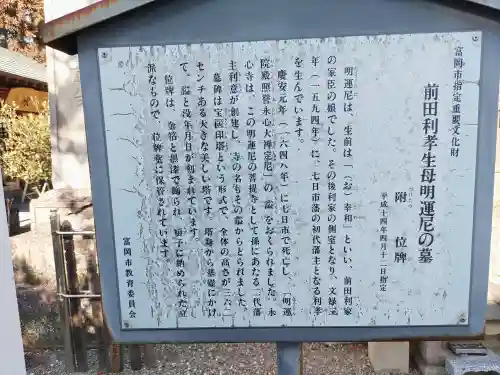 富岡市指定重要文化財
前田利孝生母明運尼の墓
附 位牌
平成十四年四月十二日指定
明運尼は、生前は「(お)幸和」といい、前田利家
の家臣の娘でした。その後利家の側室となり、文禄三
年(一五九四年)に、七日市藩の初代藩主となる利孝
を生んでいます。
慶安元年(一六四八年)に七日市で死亡し、「明運
院殿照誉永心大禅定尼」の謚をおくられました。永
心寺は、この明運尼の菩提寺として孫にあたる二代藩
主利意が創建し、寺の名もその謚からとられました。
墓碑は宝篋印塔という形式で、全体の高さが三六二
センチある大きな美しい塔です。塔身から基礎にかけ
て、謚と没年月日が刻まれています。
位牌は、金箔と黒漆で飾られ、厨子に納められた立
派なもので、位牌堂に保管されています。
富岡市教育委員会